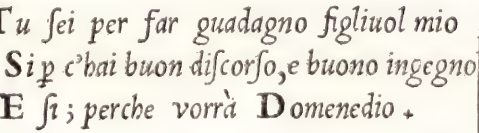 Tu ſei per far guadagno figliuol mio
Si ꝑ c'hai buon diſcorſo, e buono ingegno
E ſi; perche vorrà Domenedio.